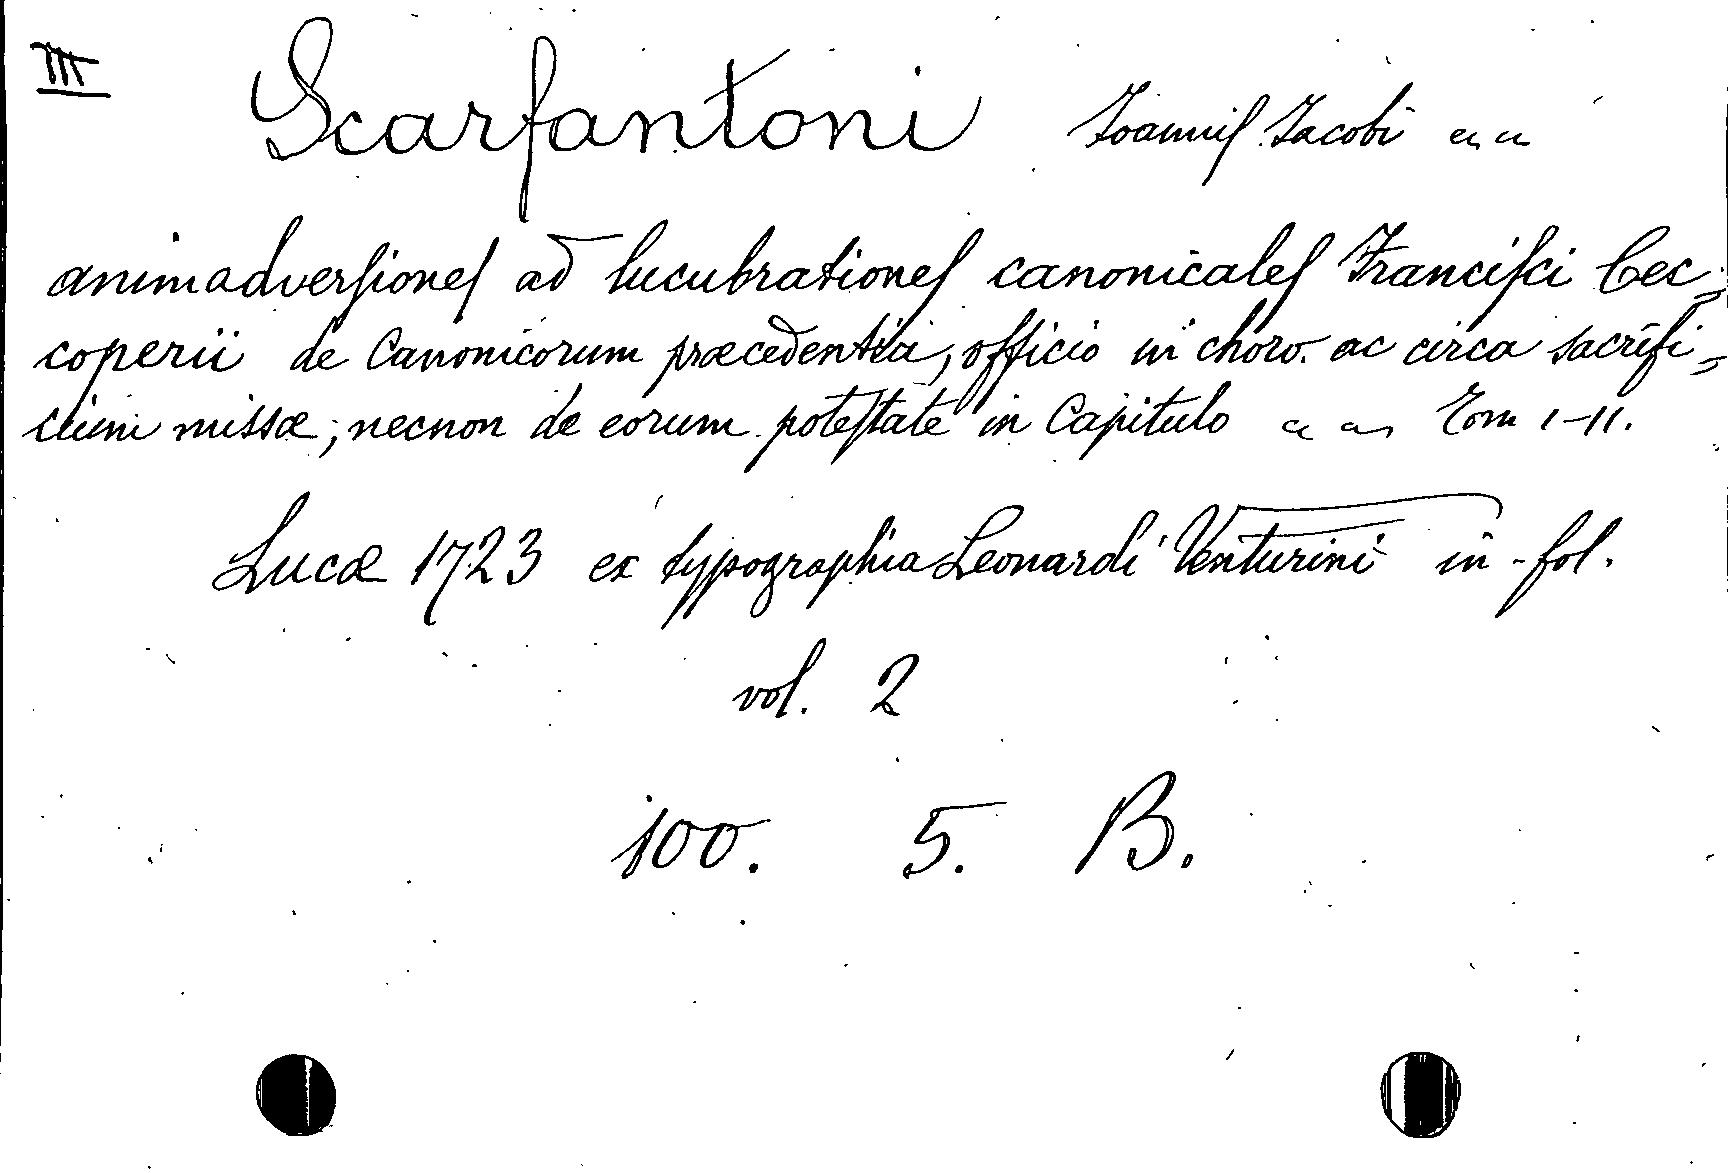 III
Scarfantoni Ioannis Iacobi
animadversiones ad lucubrationes canonicales Francisci Cec-
coperii de Canonicorum præcedentia, officio in choro ac circa sacrifi-
cium missæ; necnon de eorum potestate in Capitulo Tom I-II.
Lucæ 1723 ex typographia Leonardi Venturini in-fol.
vol. 2
100. 5. B.